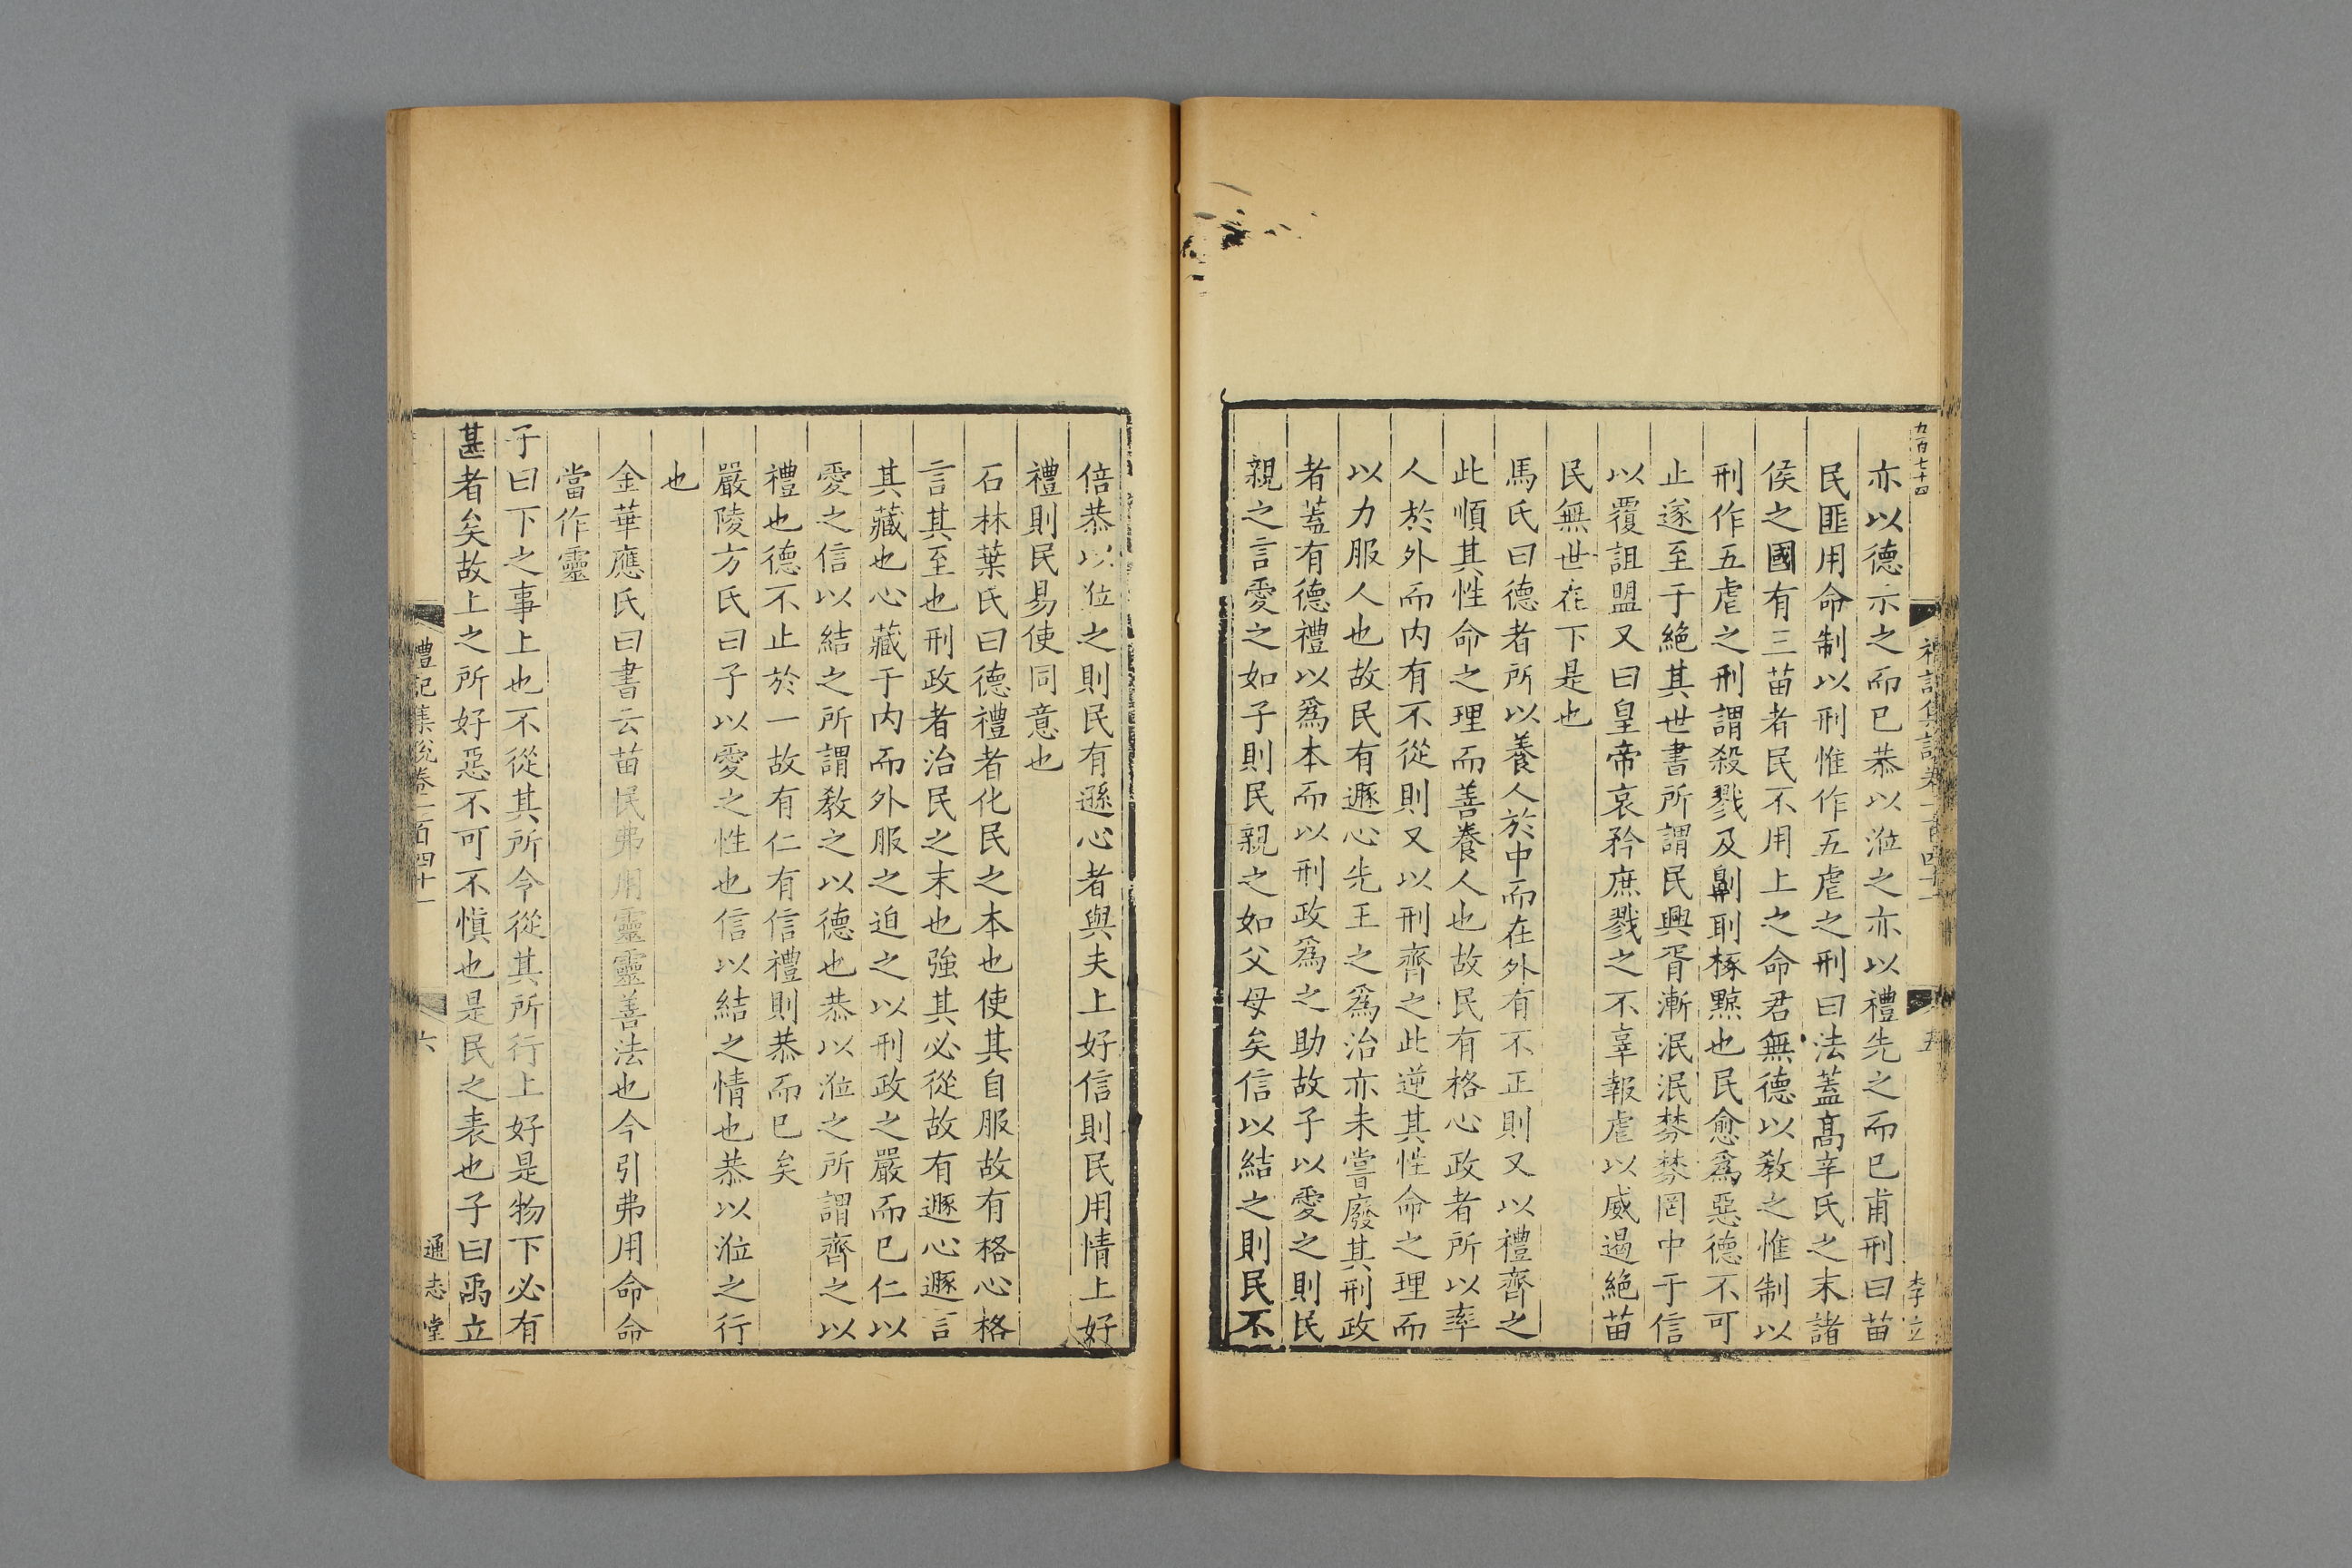 九百七十四
亦以德示之而已恭以涖之亦以禮先之而已甫刑曰苗
民匪用命制以刑惟作五虐之刑曰法蓋髙辛氏之末諸
侯之國有三苗者民不用上之命君無德以敎之惟制以
刑作五虐之刑謂殺戮及劓刵椓黥也民愈爲惡德不可
止遂至于絶其世書所謂民興胥漸泯泯棼棼罔中于信
以覆詛盟又曰皇帝哀矜庶戮之不辜報虐以威遏絶苗
民無世在下是也
馬氏曰德者所以養人於中而在外有不正則又以禮齊之
此順其性命之理而善養人也故民有格心政者所以率
人於外而内有不從則又以刑齊之此逆其性命之理而
以力服人也故民有遯心先王之爲治亦未嘗廢其刑政
者蓋有德禮以爲本而以刑政爲之助故子以愛之則民
親之言愛之如子則民親之如父母矣信以結之則民不
倍恭以涖之則民有遜心者與夫上好信則民用情上好
禮則民易使同意也
石林葉氏曰德禮者化民之本也使其自服故有格心格
言其至也刑政者治民之末也強其必從故有遯心遯言
其藏也心藏于内而外服之迫之以刑政之嚴而已仁以
愛之信以結之所謂敎之以德也恭以涖之所謂齊之以
禮也德不止於一故有仁有信禮則恭而已矣
嚴陵方氏曰子以愛之性也信以結之情也恭以涖之行
也
金華應氏曰書云苗民弗用靈靈善法也今引弗用命命
當作靈
子曰下之事上也不從其所令從其所行上好是物下必有
甚者矣故上之所好惡不可不愼也是民之表也子曰禹立
禮記集說卷一百四十一
六
通志堂